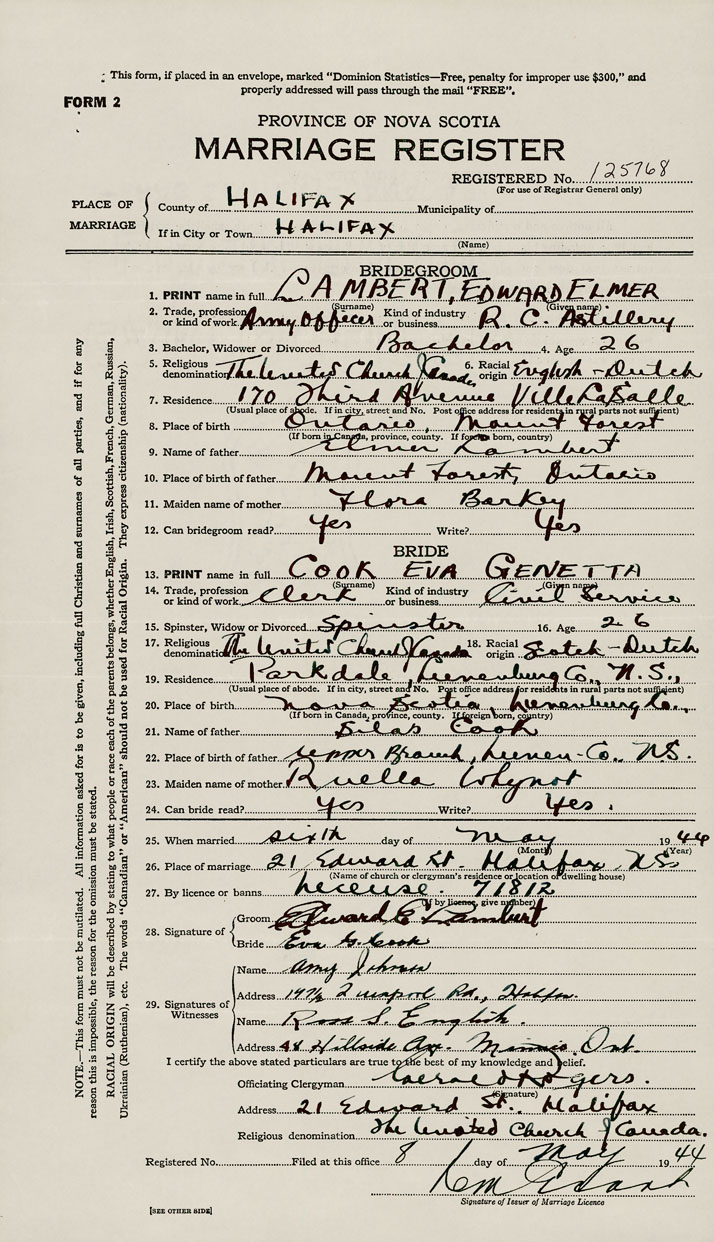 This form, if placed in an envelope, marked "Dominion Statistics—Free, penalty for improper use $300," and
properly addressed will pass through the mail "FREE".
FORM 2
PROVINCE OF NOVA SCOTIA
MARRIAGE REGISTER
REGISTERED No. 125768
(For use of Registrar General only)
PLACE OF MARRIAGE
County of HALIFAX Municipality of
If in City or Town HALIFAX
(Name)
BRIDEGROOM
1. PRINT name in full LAMBERT, EDWARD ELMER
(Surname) (Given name)
2. Trade, profession or kind of work Army Officer Kind of industry or business R. C. Artillery
3. Bachelor, Widower or Divorced Bachelor 4. Age 26
5. Religious denomination The United Church of Canada 6. Racial origin English-Dutch
7. Residence 170 Third Avenue Ville LaSalle
(Usual place of abode. If in city, street and No. Post office address for residents in rural parts not sufficient)
8. Place of birth Ontario, Mount Forest
(If born in Canada, province, county. If foreign born, country)
9. Name of father Elmer Lambert
10. Place of birth of father Mount Forest, Ontario
11. Maiden name of mother Flora Barkey
12. Can bridegroom read? Yes Write? Yes
BRIDE
13. PRINT name in full COOK EVA GENETTA
(Surname) (Given name)
14. Trade, profession or kind of work Clerk Kind of industry or business Civil Service
15. Spinster, Widow or Divorced Spinster 16. Age 26
17. Religious denomination The United Church of Canada 18. Racial origin Scotch-Dutch
19. Residence Parkdale, Lunenburg Co., N.S.,
(Usual place of abode. If in city, street and No. Post office address for residents in rural parts not sufficient)
20. Place of birth Nova Scotia, Lunenburg Co.,
(If born in Canada, province, county. If foreign born, country)
21. Name of father Silas Cook
22. Place of birth of father Upper Branch, Lunen-Co., N.S.
23. Maiden name of mother Ruella Whynot
24. Can bride read? Yes Write? Yes.
25. When married sixth day of May 1944
(Month) (Year)
26. Place of marriage 21 Edward St. Halifax, NS
(Name of church or clergyman's residence or location of dwelling house)
27. By licence or banns License. 71812
(If by licence, give number)
28. Signature of
Groom Edward E Lambert
Bride Eva G. Cook
29. Signatures of Witnesses
Name Amy Johnson
Address 197½ Liverpool Rd., Halifax.
Name Ross S. English.
Address 48 Hillside Ave. Mimico, Ont.
I certify the above stated particulars are true to the best of my knowledge and belief.
Officiating Clergyman Rogers.
(Signature)
Address 21 Edward St. Halifax
Religious denomination The United Church of Canada.
Registered No. Filed at this office 8 day of May 1944
Signature of Issuer of Marriage Licence
[SEE OTHER SIDE]
NOTE.—This form must not be mutilated. All information asked for is to be given, including full Christian and surnames of all parties, and if for any
reason this is impossible, the reason for the omission must be stated.
RACIAL ORIGIN will be described by stating to what people or race each of the parents belongs, whether English, Irish, Scottish, French, German, Russian,
Ukrainian (Ruthenian), etc. The words "Canadian" or "American" should not be used for Racial Origin. They express citizenship (nationality).